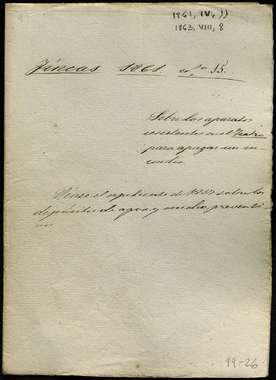 1861, IV, 11
1863, VIII, 8
Fincas 1861. nº 15.
Sobre los aparatos
ecsistentes en el Teatro
para apagar un in-
cendio.
Vease el espediente de 1857 sobre los
depósitos de agua y medios preventi-
vos.
99-26